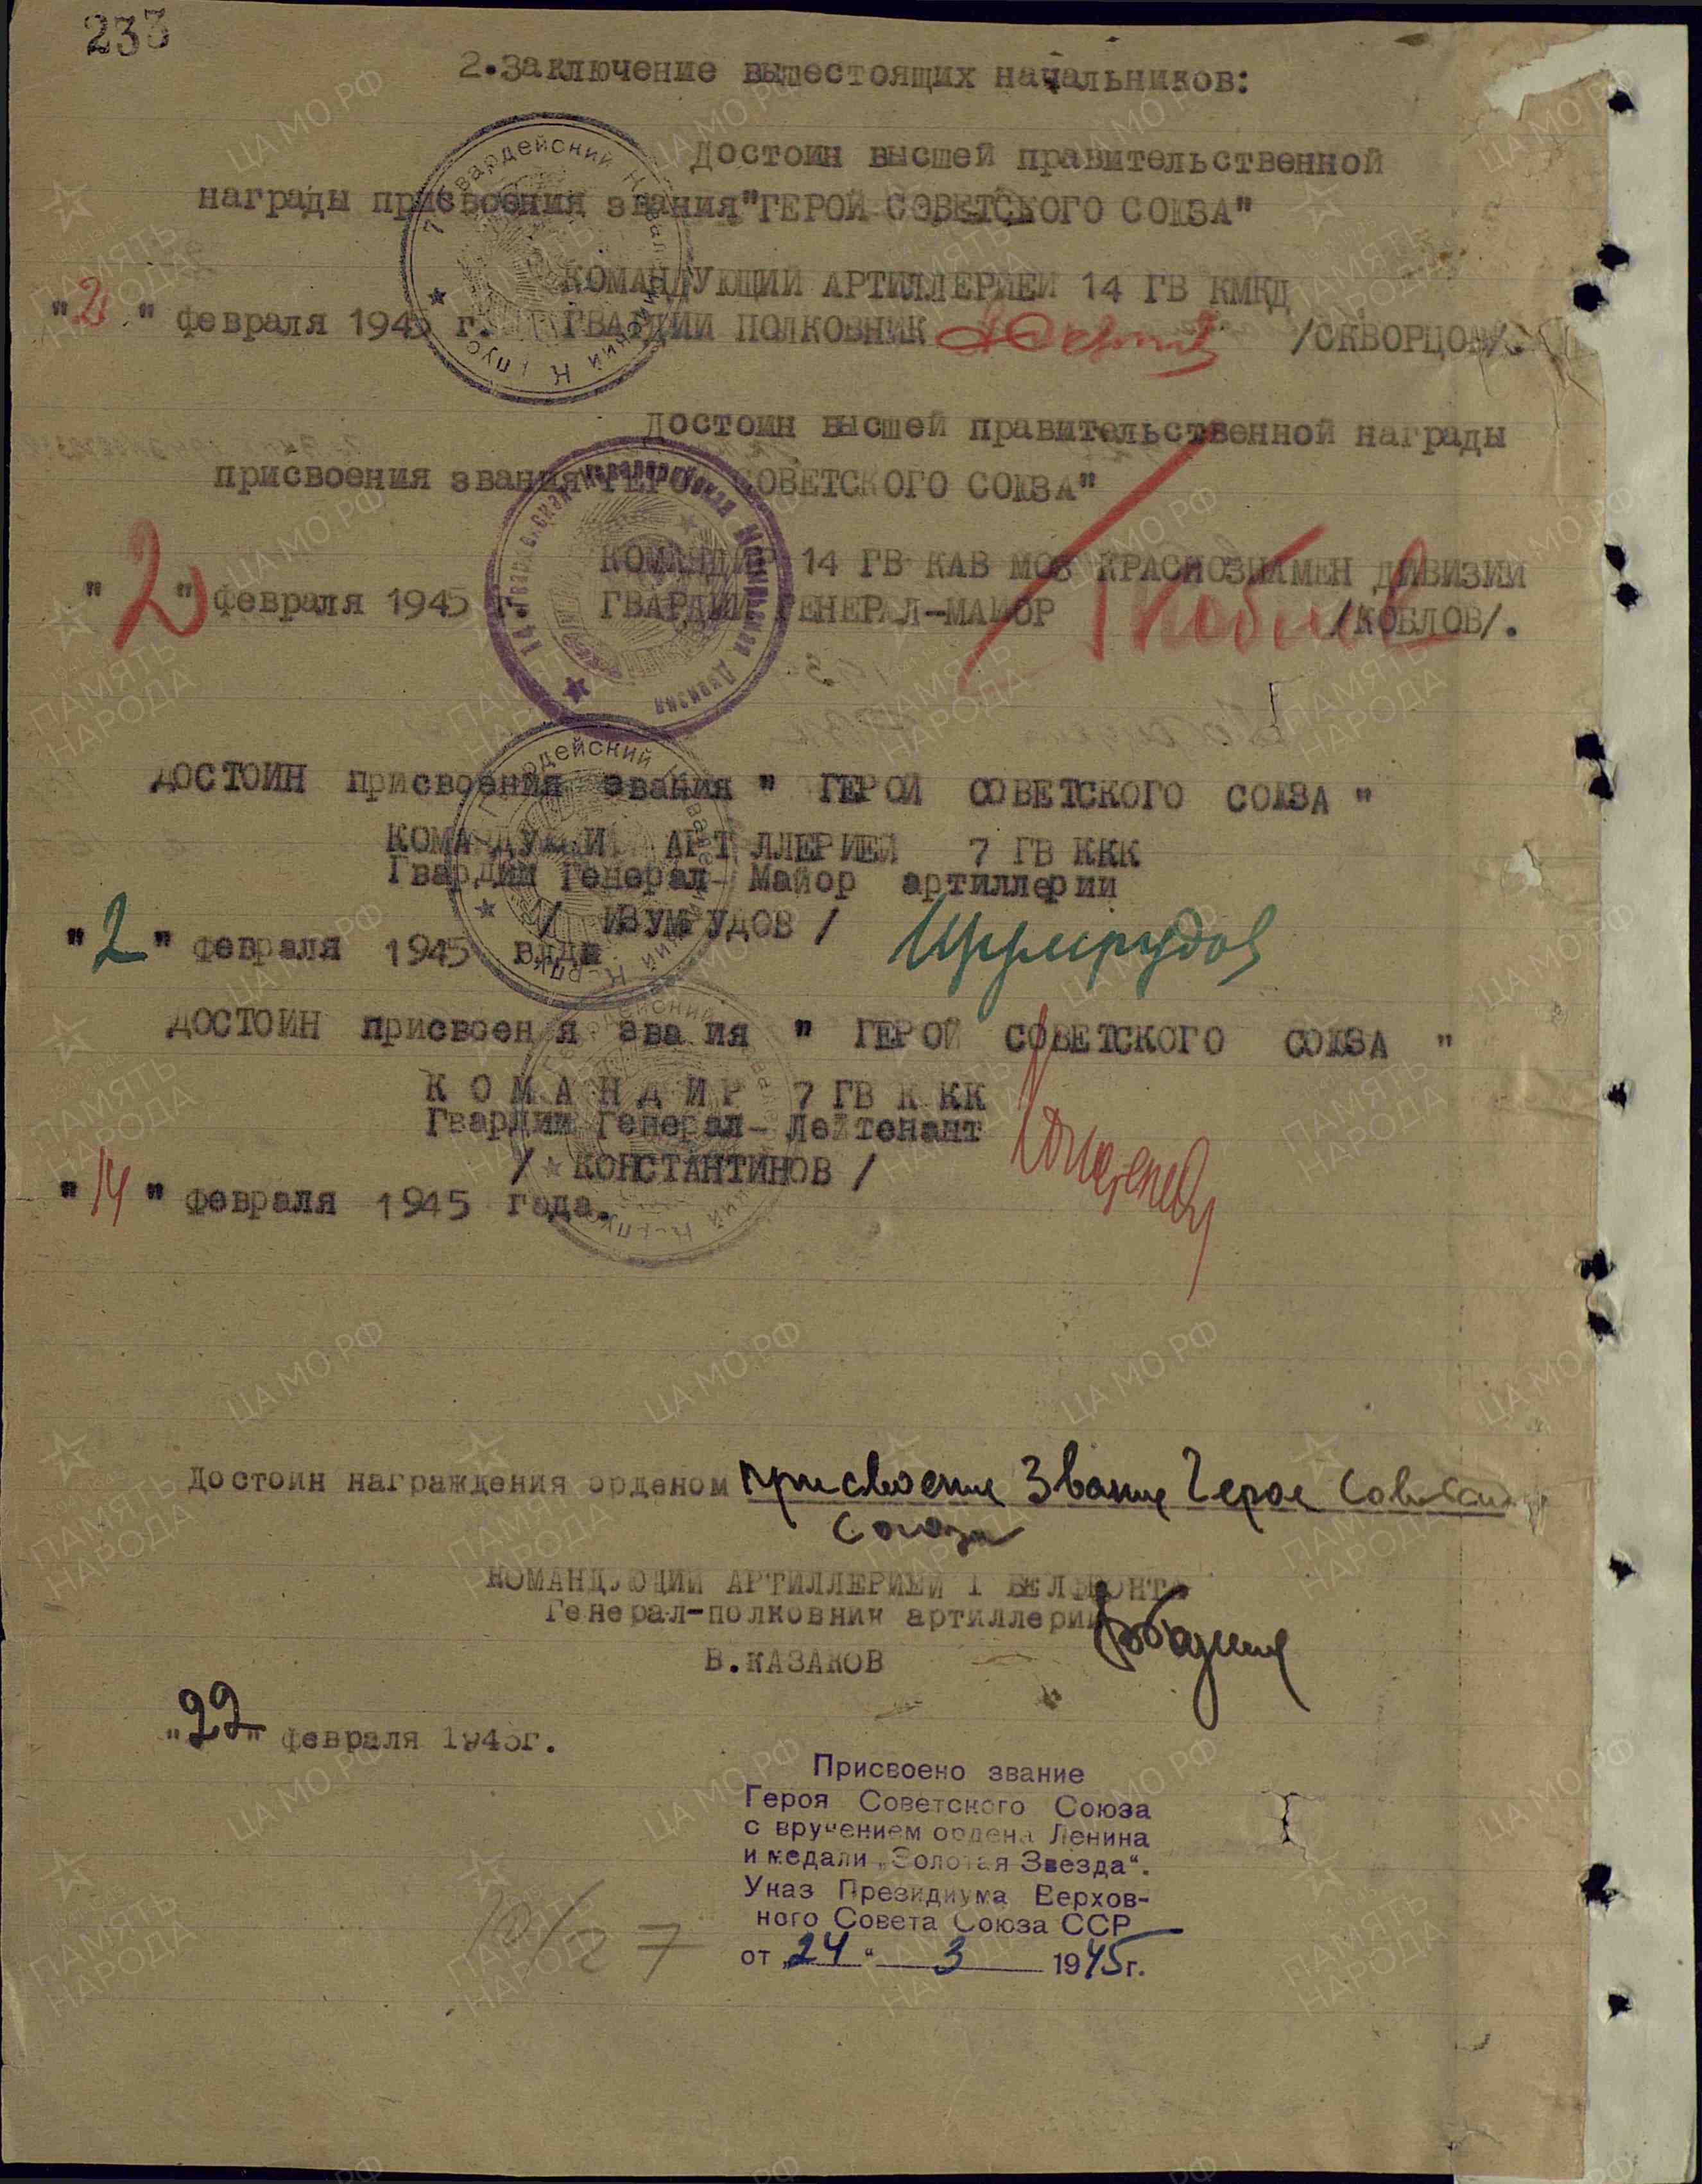 233
2.Заключение вышестоящих начальников:
Достоин высшей правительственной
награды присвоения звания"ГЕРОЙ СОВЕТСКОГО СОЮЗА"
КОМАНДУЮЩИЙ АРТИЛЛЕРИЕЙ 14 ГВ КМКД
"2" февраля 1945 г. ГВАРДИИ ПОЛКОВНИК /СКВОРЦОВ/.
Достоин высшей правительственной награды
присвоения звания"ГЕРОЙ СОВЕТСКОГО СОЮЗА"
КОМАНДИР 14 ГВ КАВ МОЗ КРАСНОЗНАМЕН ДИВИЗИИ
"2" февраля 1945 г. ГВАРДИИ ГЕНЕРАЛ-МАЙОР /КОБЛОВ/.
ДОСТОИН присвоения звания " ГЕРОЙ СОВЕТСКОГО СОЮЗА "
КОМАНДУЮЩИЙ АРТ ЛЛЕРИЕЙ 7 ГВ ККК
Гвардии Генерал- Майор артиллерии
/ ИЗУМРУДОВ / Изумрудов
"2" февраля 1945
ДОСТОИН присвоен я зва ия " ГЕРОЙ СОВЕТСКОГО СОЮЗА "
К О М А Н Д И Р 7 ГВ К КК
Гвардии Генерал- Лейтенант
/ КОНСТАНТИНОВ /
"14" февраля 1945 года.
Достоин награждения орденом присвоение Звание Героя Советского
Союза
КОМАНДУЮЩИЙ АРТИЛЛЕРИЕЙ 1 БЕЛФРОНТА
Генерал-полковник артиллерии
В.КАЗАКОВ
"22" февраля 1945г.
Присвоено звание
Героя Советского Союза
с вручением ордена Ленина
и медали „Золотая Звезда“.
Указ Президиума Верхов-
ного Совета Союза ССР
от „24“ 3 1945г.